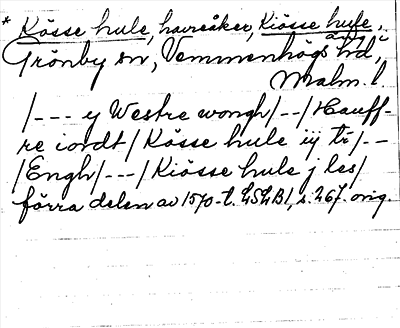 * Kösse hule, havreåker, Kiösse hule, äng i
Grönby sn, Vemmenhögs hd,
Malm. l.
/--- y Westre wongh/--/Hauff-
re iordt/Kösse hule iij tr/--
/Engh/--/Kiösse hule j les/
förra delen av 1570-t. LSLB1, s. 267. orig.